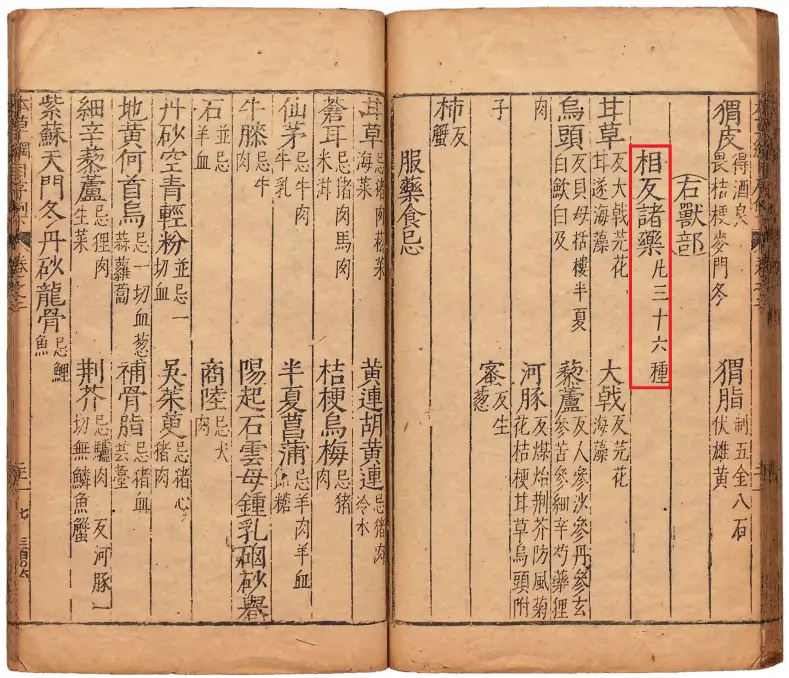 猬皮 得酒良 畏桔梗麥門冬 猬脂 制五金八石 伏雄黄
右獸部
相反諸藥 凡三十六種
甘草 反大戟芫花 甘遂海藻 大戟 反芫花 海藻
烏頭 反貝母栝樓半夏 白斂白及 藜蘆 反人參沙參丹參玄 參苦參細辛芍藥狸
肉 河豚 反煤炲荆芥防風菊 花桔梗甘草烏頭附
子 蜜 反生 葱
柿 反 蟹
服藥食忌
甘草 忌猪肉菘菜 海菜 黄連胡黄連 忌猪肉 冷水
蒼耳 忌猪肉馬肉 米泔 桔梗烏梅 忌猪 肉
仙茅 忌牛肉 牛乳 半夏菖蒲 忌羊肉羊血 飴糖
牛膝 忌牛 肉 陽起石雲母鍾乳硇砂礜
石 並忌 羊血 商陸 忌犬 肉
丹砂空青輕粉 並忌一 切血 吳茱萸 忌猪心 猪肉
地黄何首烏 忌一切血葱 蒜蘿蔔 補骨脂 忌猪血 芸薹
細辛藜蘆 忌狸肉 生菜 荆芥 忌驢肉 反河豚一 切無鱗魚蟹
紫蘇天門冬丹砂龍骨 忌鯉 魚
本草綱目序例下 卷之二 七 三百〇六